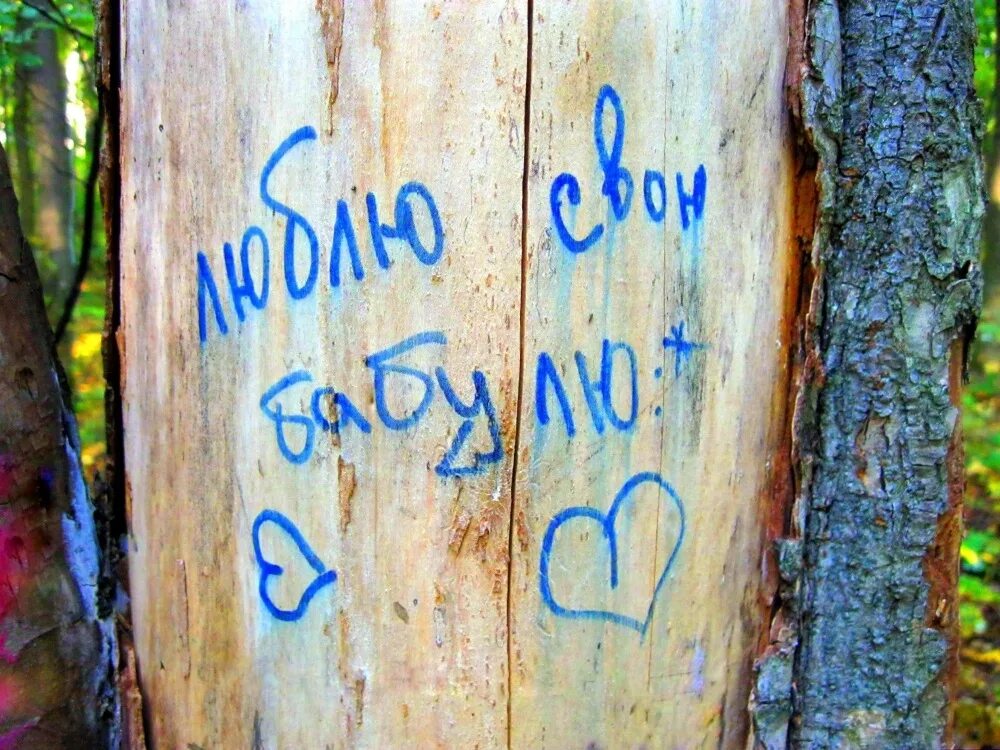 люблю свою
бабулю:*